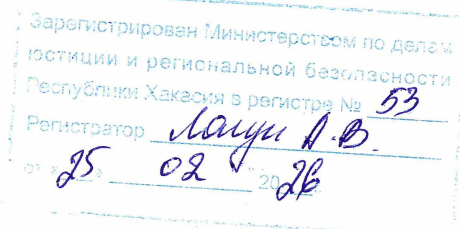 Зарегистрирован Министерством по делам
юстиции и региональной безопасности
Республики Хакасия в регистре № 53
Регистратор А.В.
от « 25 » 02 20 26